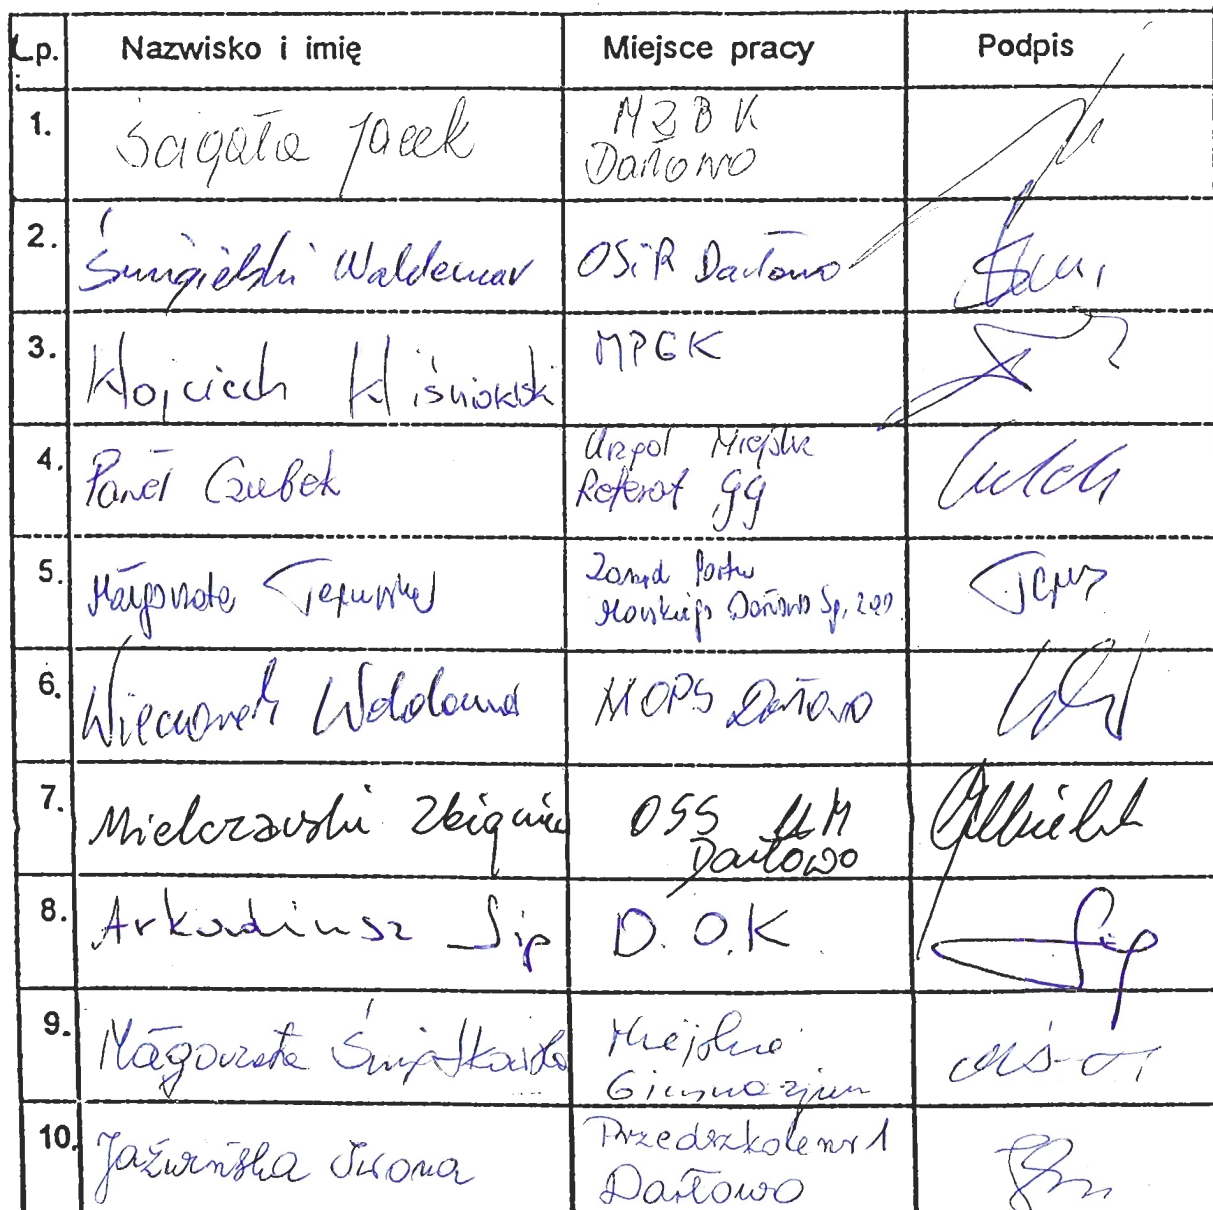 Lp. Nazwisko i imię Miejsce pracy Podpis
1. Ścigała Jacek MZBK
Darłowo
2. Śmigielski Waldemar OSiR Darłowo
3. Wojciech Wiśniowski MPGK
4. Paweł Czubek Urząd Miejski
Referat GG
5. Małgorzata Zarząd Portu
Morskiego Darłowo Sp. z o.o.
6. Wieczorek Waldemar MOPS Darłowo
7. Mielczarski Zbigniew OSS UM
Darłowo
8. Arkadiusz Sip D.O.K Sip
9. Małgorzata Świątkowska Miejskie
Gimnazjum
10. Jaźwińska Iwona Przedszkole nr 1
Darłowo